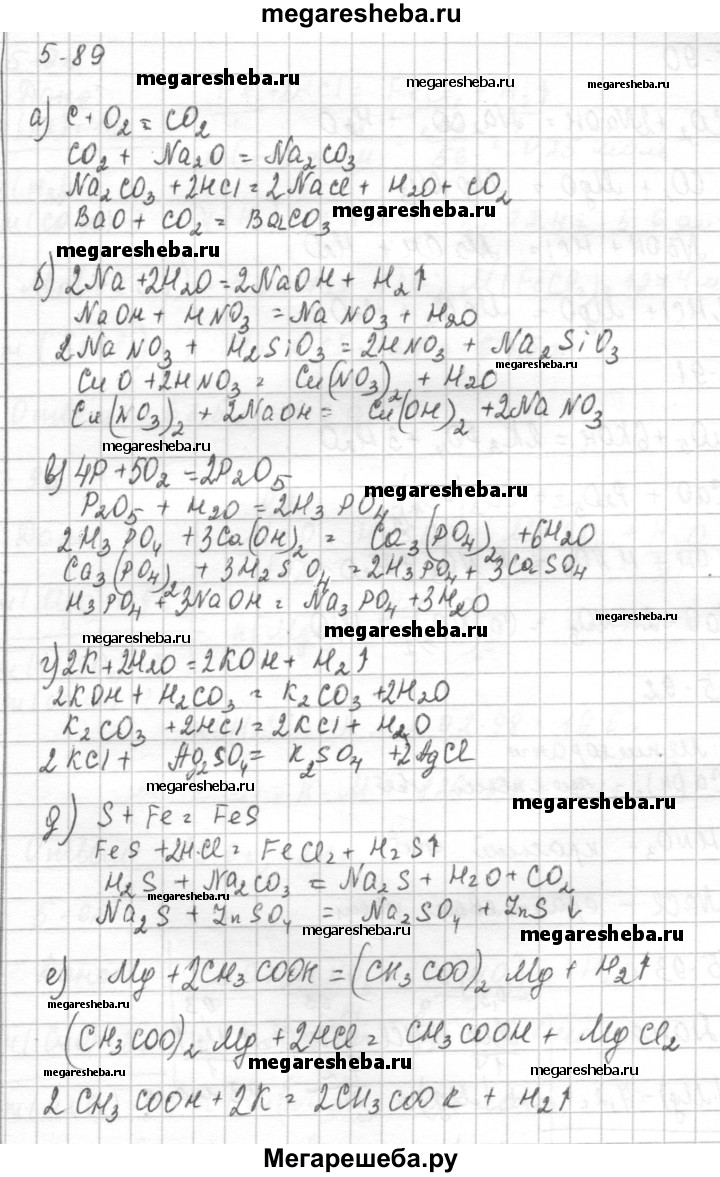 megaresheba.ru
5-89
megaresheba.ru megaresheba.ru megaresheba.ru
а) C + O2 = CO2
CO2 + Na2O = Na2CO3
Na2CO3 + 2HCl = 2NaCl + H2O + CO2
BaO + CO2 = BaCO3 megaresheba.ru
megaresheba.ru
б) 2Na + 2H2O = 2NaOH + H2↑
NaOH + HNO3 = NaNO3 + H2O
2NaNO3 + H2SiO3 = 2HNO3 + Na2SiO3
megaresheba.ru
CuO + 2HNO3 = Cu(NO3)2 + H2O
Cu(NO3)2 + 2NaOH = Cu(OH)2 + 2NaNO3
megaresheba.ru
в) 4P + 5O2 = 2P2O5
megaresheba.ru
P2O5 + H2O = 2H3PO4
2H3PO4 + 3Ca(OH)2 = Ca3(PO4)2 + 6H2O
Ca3(PO4)2 + 3H2SO4 = 2H3PO4 + 3CaSO4
H3PO4 + 3NaOH = Na3PO4 + 3H2O
megaresheba.ru megaresheba.ru megaresheba.ru
г) 2K + 2H2O = 2KOH + H2↑
2KOH + H2CO3 = K2CO3 + 2H2O
K2CO3 + 2HCl = 2KCl + H2O
2KCl + Ag2SO4 = K2SO4 + 2AgCl
megaresheba.ru megaresheba.ru
д) S + Fe = FeS
FeS + 2HCl = FeCl2 + H2S↑
H2S + Na2CO3 = Na2S + H2O + CO2
megaresheba.ru
Na2S + ZnSO4 = Na2SO4 + ZnS↓
megaresheba.ru megaresheba.ru
е) Mg + 2CH3COOH = (CH3COO)2Mg + H2↑
megaresheba.ru
(CH3COO)2Mg + 2HCl = CH3COOH + MgCl2
megaresheba.ru megaresheba.ru megaresheba.ru
2CH3COOH + 2K = 2CH3COOK + H2↑
Мегарешеба.ру